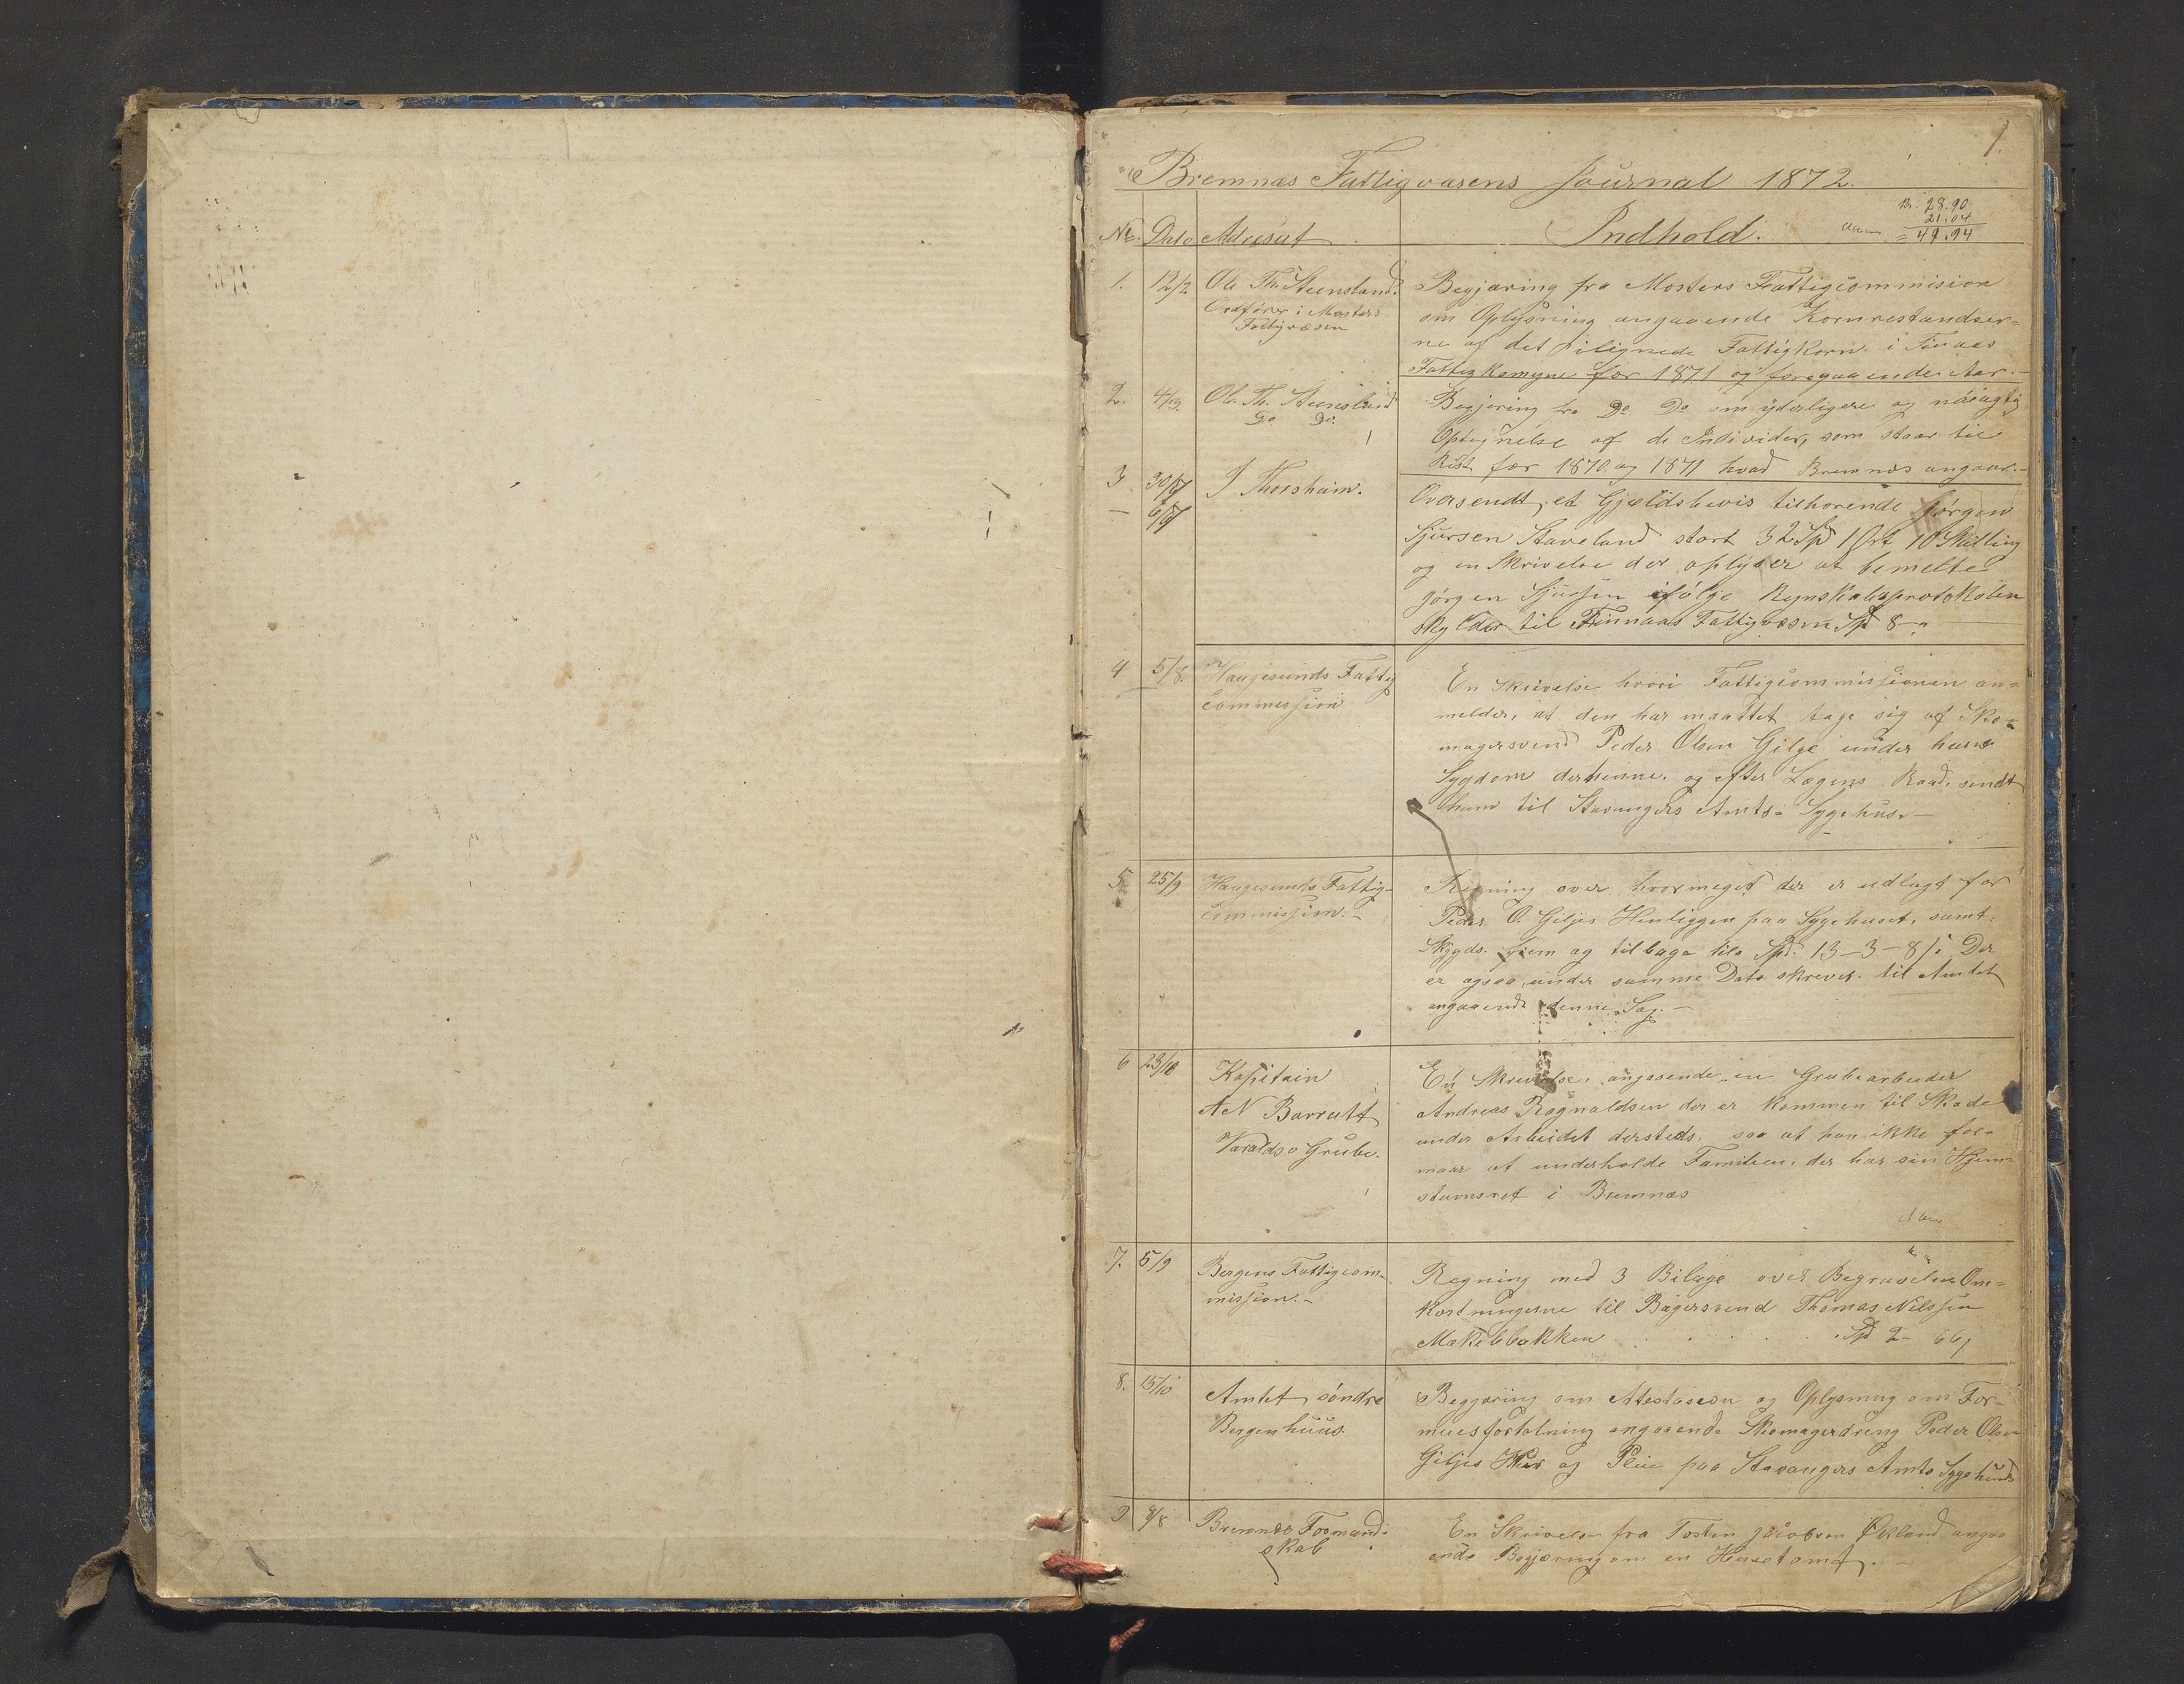 1.
Bremnæs Fattigvæsens Journal 1872.
Nr. Dato Adresat Indhold.
28.90
21.04
= 49.94
1. 12/2 Ole Th. Steensland
Ordfører i Mosters
Fattigvæsen
Begjæring fra Mosters Fattigcommision
om Oplysning angaaende Kornrestandser-
ne af det pilignede Fattigkorn i Finaas
Fattigkomyne for 1871 og foregaaende Aar.-
2. 4/3. Ole Th. Steensland
Do Do.
Begjæring fra Do Do om yderligere og nøiagtig
Optegnelse af de Individer, som staar til
Rest for 1870 og 1871 hvad Bremnæs angaar.-
3 30/6 6/7 J Thorsheim.
Oversendt et Gjældsbevis tilhorende Jørgen
Sjursen Staveland stort 32 Spd 1 Ort 10 Skilling
og en Skrivelse der oplyser at bemelte
Jørgen Sjursen ifølge Regnskabsprotokolen
skylder til Finnaas Fattigvæsen Spd 8-"
4 5/8. Haugesunds Fattig
commission
En Skrivelse hvori Fattigcommissionen an-
melder, at den har maattet tage sig af Sko-
magersvend Peder Olsen Gilge under hans
Sygdom derhenne, og efter Lægens Raad, sendt
ham til Stavangers Amts- Sygehus.-
5. 25/9 Haugesunds Fattig-
commission.-
Regning over hvormeget der er udlagt for
Peder O. Giljes Henliggen paa Sygehuset, samt.
Skyds. frem og tilbage til Spd. 13-3-8 /. Der
er ogsaa under samme Dato skrevet til Amtet
angaaende denne Sag.-
6 23/10 Kapitain
A N Barratt
Varaldsø Grube.
En Skrivelse, angaaende en Grubearbeider
Andreas Ragnaldsen der er kommen til Skade
under Arbeidet dersteds, saa at han ikke for-
maar at underholde Familien, der har sin Hjem-
stavnsret i Bremnæs
7. 5/9 Bergens Fattigcom-
mission.-
Regning med 3 Bilage over Begravelses Om-
kostningerne til Bagersvend Thomas Nilssen
Mækebbakken . . . . . . Spd 2- 66,
8. 15/10 Amtet søndre
Bergenhuus.
Begjæring om Attestasion og Oplysning om For-
muesforfatning angaaende Skomagerdreng Peder Olsen
Giljes Kur og Pleie paa Stavangers Amts Sygehuus
9 8/8 Bremnæs Formand-
skab
En Skrivelse fra Tosten Jacobsen Økland angaa
ende Begjæring om en Husetomt.-